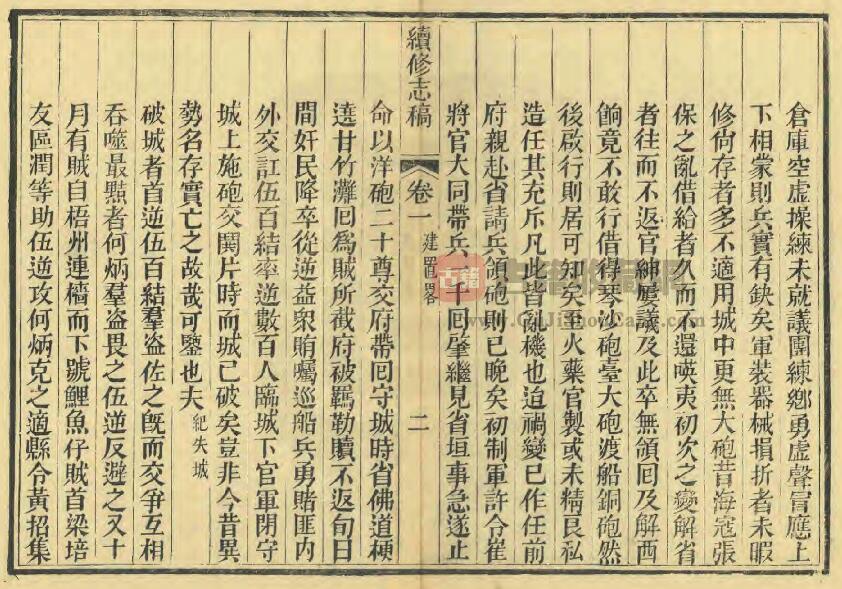 倉庫空虛操練未就議團練鄉勇虛聲冐應上
下相蒙則兵實有缺矣軍裝器械損折者未暇
修尙存者多不適用城中更無大砲昔海寇張
保之亂借給者久而不還暎夷初次之變解省
者往而不返官紳屢議及此卒無領囘及解西
餉竟不敢行借得琴沙砲臺大砲渡船銅砲然
後啟行則居可知矣至火藥官製或未精良私
造任其充斥凡此皆亂機也迨禍變已作任前
府親赴省請兵領砲則已晚矣初制軍許令崔
將官大同帶兵一千囘肇繼見省垣事急遂止
續修志稿 卷一 建置畧 二
命以洋砲二十尊交府帶囘守城時省佛道梗
遶甘竹灘囘爲賊所截府被羈勒贖不返旬日
間奸民降卒從逆益衆賄囑巡船兵勇賭匪内
外交訌伍百結率逆數百人臨城下官軍閉守
城上施砲交鬨片時而城已破矣豈非今昔異
勢名存實亡之故哉可鑒也夫 紀失城
破城者首逆伍百結羣盗佐之旣而交爭互相
吞噬最黠者何炳羣盗畏之伍逆反避之又十
月有賊自梧州連檣而下號鯉魚仔賊首梁培
友區潤等助伍逆攻何炳克之適縣令黃招集